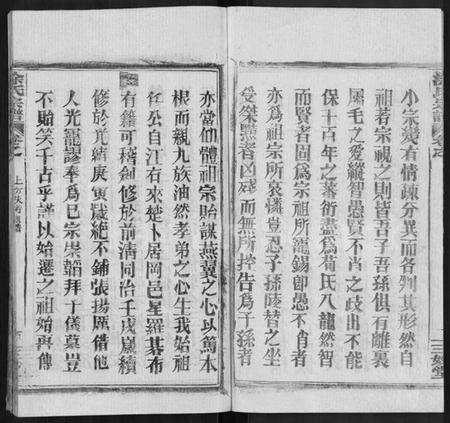 小宗變者情疎分異而各判其形然自
祖若宗視之則皆吾子吾孫俱有離裏
屬毛之愛縱智愚賢不肖之歧出不能
保十百年之蓁衍盡爲荀氏八龍然智
而賢者固爲宗祖所寵錫卽愚不肖者
亦爲祖宗所哀憐豈忍子孫陵替之坐
受桀黠者凶虐而無所控告爲子孫者
亦當仰體祖宗貽謀燕翼之心以篤本
根而親九族油然孝弟之心生我始祖
公自江右來楚卜居岡邑星羅碁布
有籍可稽創修於前淸同治壬戌嵗續
修於光緖庚寅嵗絶不鋪張揚厲借他
人光寵謬奉爲已宗崇韜拜子儀墓豈
不貽笑千古乎謹以始遷之祖始再傳
涂氏宗譜
卷之
三
堂